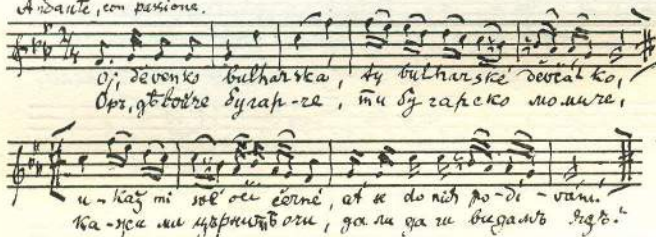 Andante, con passione.
2/4
Oj, děvenko bulharská, ty bulharské děvčátko,
дѣвойче бугар-че, ти бугарско момиче,
u-kaž mi své oči černé, ať se do nich po-dí-vám.
ка-жи ми църнитѣ очи, да ги видамъ